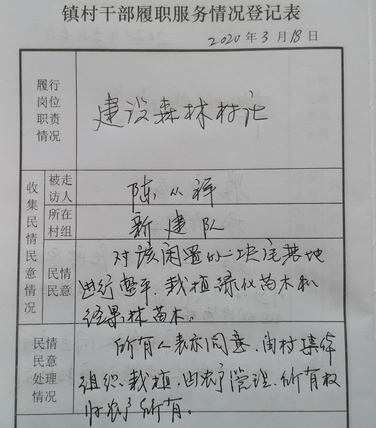 镇村干部履职服务情况登记表
2020年3月18日
履行
岗位
职责
情况
建设森林村庄
收集民情民意情况
被走
访人
陈从祥
所在
村组
新建队
民情
民意
对该闲置的一块宅基地
进行整平，栽植绿化苗木和
经果林苗木。
民情
民意
处理
情况
所有人表示同意，由村集体
组织、栽植，由农户管理，所有权
归农户所有。